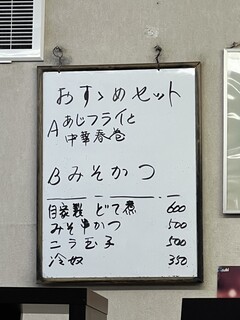 おすゝめセット
A あじフライと
中華春巻
B みそかつ
自家製 どて煮 600
みそ串かつ 500
ニラ玉子 500
冷奴 350